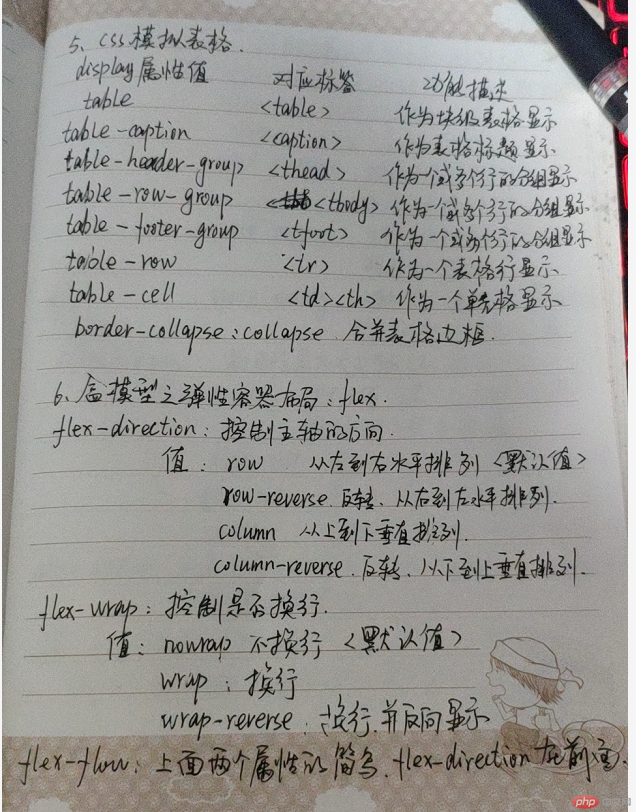 5、css模拟表格.
display属性值 对应标签 功能描述
table <table> 作为块级表格显示
table-caption <caption> 作为表格标题显示
table-header-group <thead> 作为一个或多个行的分组显示
table-row-group <tbody> 作为一个或多个行的分组显示
table-footer-group <tfoot> 作为一个或多个行的分组显示
table-row <tr> 作为一个表格行显示
table-cell <td><th> 作为一个单元格显示
border-collapse:collapse 合并表格边框.
6、盒模型之弹性容器布局:flex.
flex-direction:控制主轴的方向.
值: row 从左到右水平排列<默认值>
row-reverse.反转、从右到左水平排列.
column 从上到下垂直排列.
column-reverse.反转、从下到上垂直排列.
flex-wrap:控制是否换行.
值:nowrap 不换行<默认值>
wrap:换行
wrap-reverse:换行,并反向显示
flex-flow:上面两个属性的简写.flex-direction在前面.
php